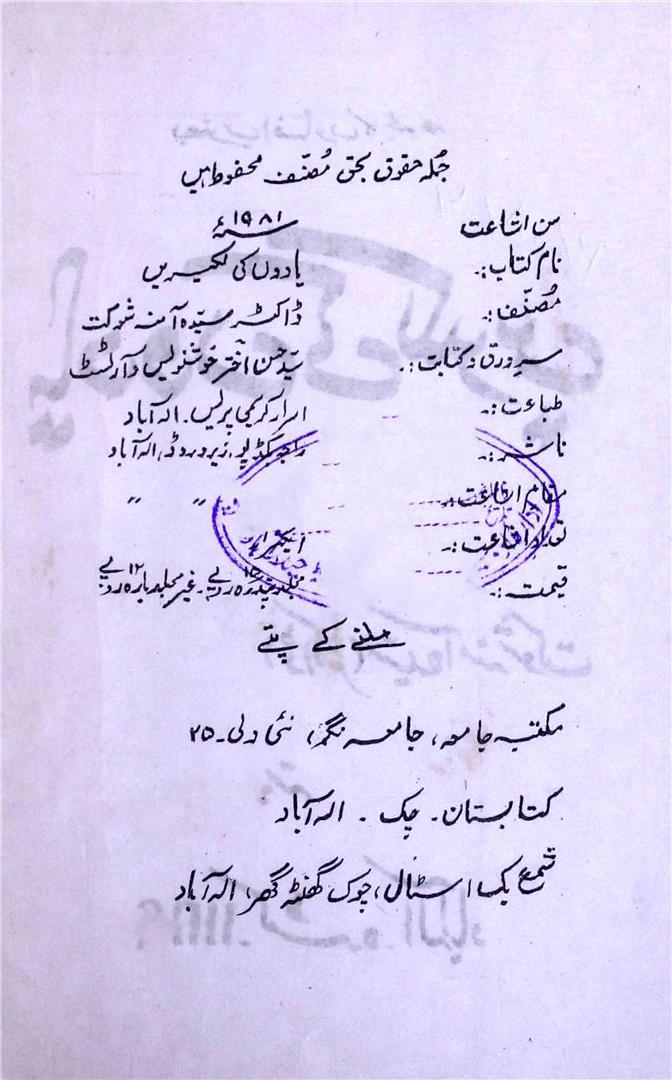 جُملہ حقوق بحقِ مُصنّف محفوظ ہیں
سن اشاعت ۱۹۸۱ء
نام کتاب:۔ یادوں کی لکیریں
مُصنّف:۔ ڈاکٹر سیّدہ آمنہ شوکت
سرورق و کتابت:۔ سیّد حسن اختر خوشنویس و آرٹسٹ
طباعت:۔ اسرار کریمی پریس۔ الہ آباد
ناشر:۔ راجہ بکڈپو، زیرو روڈ، الہ آباد
مقام اشاعت:۔ " "
تعداد اشاعت:۔ ایکہزار
قیمت:۔ مجلد پندرہ روپے۔ غیر مجلد بارہ ۱۲ روپے
ملنے کے پتے
مکتبہ جامعہ، جامعہ نگر، نئی دلی۔ ۲۵
کتابستان۔ چک۔ الہ آباد
شمع بک اسٹال، چوک گھنٹہ گھر، الہ آباد